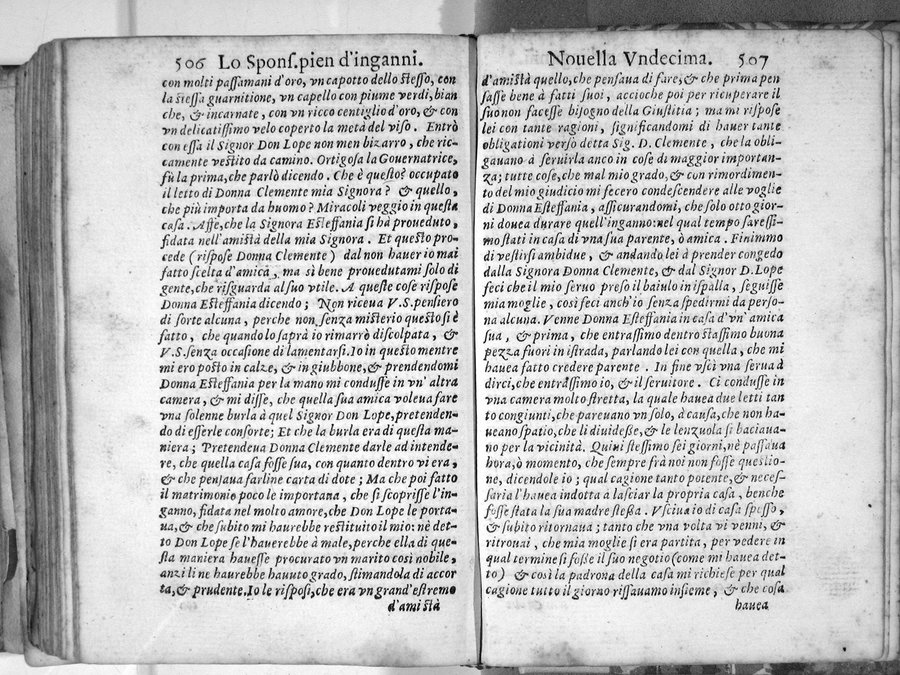 506 Lo Spons.pien d'inganni.
con molti passamani d'oro, vn capotto dello stesso, con
la stessa guarnitione, vn capello con piume verdi, bian
che, & incarnate, con vn ricco centiglio d'oro, & con
vn delicatissimo velo coperto la metà del viso. Entrò
con essa il Signor Don Lope non men bizarro, che ric-
camente vestito da camino. Ortigosa la Gouernatrice,
fù la prima, che parlò dicendo. Che è questo? occupato
il letto di Donna Clemente mia Signora? & quello,
che più importa da huomo? Miracoli veggio in questa
casa. Affe, che la Signora Esteffania si hà proueduto,
fidata nell'amistà della mia Signora. Et questo pro-
cede (rispose Donna Clemente) dal non hauer io mai
fatto scelta d'amica, ma sì bene prouedutami solo di
gente, che risguarda al suo vtile. A queste cose rispose
Donna Esteffania dicendo; Non riceua V.S. pensiero
di sorte alcuna, perche non senza misterio questo si è
fatto, che quando lo saprà io rimarrò discolpata, &
V.S. senza occasione di lamentarsi. Io in questo mentre
mi ero posto in calze, & in giubbone, & prendendomi
Donna Esteffania per la mano mi condusse in vn' altra
camera, & mi disse, che quella sua amica voleua fare
vna solenne burla à quel Signor Don Lope, pretenden-
do di esserle consorte; Et che la burla era di questa ma-
niera; Pretendeua Donna Clemente darle ad intende-
re, che quella casa fosse sua, con quanto dentro vi era,
& che pensaua farline carta di dote; Ma che poi fatto
il matrimonio poco le importaua, che si scoprisse l'in-
ganno, fidata nel molto amore, che Don Lope le porta-
ua, & che subito mi haurebbe restituito il mio: nè det-
to Don Lope se l'hauerebbe à male, perche ella di que-
sta maniera hauesse procurato vn marito così nobile,
anzi li ne haurebbe hauuto grado, stimandola di accor
ta, & prudente. Io le risposi, che era vn grand'estremo
d'amistà
Nouella Vndecima. 507
d'amistà quello, che pensaua di fare, & che prima pen
sasse bene à fatti suoi, accioche poi per ricuperare il
suo non facesse bisogno della Giustitia; ma mi rispose
lei con tante ragioni, significandomi di hauer tante
obligationi versò detta Sig. D. Clemente, che la obli-
gauano à seruirla anco in cose di maggior importan-
za; tutte cose, che mal mio grado, & con rimordimen-
to del mio giudicio mi fecero condescendere alle voglie
di Donna Esteffania, assicurandomi, che solo otto gior-
ni douea durare quell'inganno: nel qual tempo saressi-
mo stati in casa di vna sua parente, ò amica. Finimmo
di vestirsi ambidue, & andando lei à prender congedo
dalla Signora Donna Clemente, & dal Signor D. Lope
feci che il mio seruo preso il baiulo in ispalla, seguisse
mia moglie, così feci anch'io senza spedirmi da perso-
na alcuna. Venne Donna Esteffania in casa d'vn' amica
sua, & prima, che entrassimo dentro stassimo buona
pezza fuori in istrada, parlando lei con quella, che mi
hauea fatto credere parente. In fine vscì vna serua à
dirci, che entràssimo io, & il seruitore. Ci condusse in
vna camera molto stretta, la quale hauea due letti tan
to congiunti, che pareuano vn solo, à causa, che non ha-
ueano spatio, che li diuidesse, & le lenzuola si baciaua-
no per la vicinità. Quiui stessimo sei giorni, nè passaua
hora, ò momento, che sempre frà noi non fosse questio-
ne, dicendole io; qual cagione tanto potente, & neces-
saria l'hauea indotta à lasciar la propria casa, benche
fosse stata la sua madre stessa. Vsciua io di casa spesso,
& subito ritornaua; tanto che vna volta vi venni, &
ritrouai, che mia moglie si era partita, per vedere in
qual termine si fosse il suo negotio (come mi hauea det-
to) & così la padrona della casa mi richiese per qual
cagione tutto il giorno rissauamo insieme, & che cosa
hauea